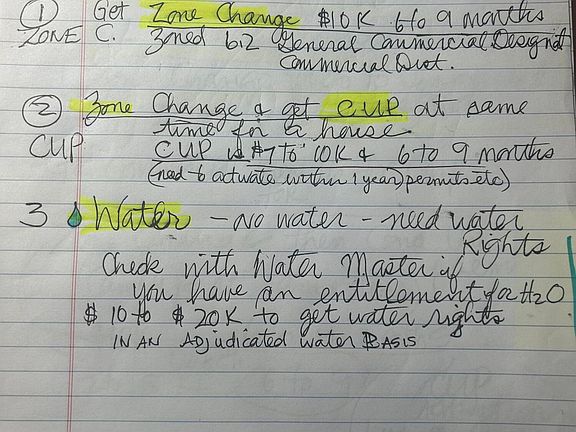 ① Get Zone Change $10K 6 to 9 months
ZONE C. Zoned 6.2 General Commercial Designat
Commercial Dist.
② Zone Change & get CUP at same
time for a house.
CUP CUP is $7 to 10K & 6 to 9 months
(need to activate within 1 year) permits etc)
3 Water - no water - need water
Rights
Check with Water Master if
you have an entitlement for H2O
$10 to $20K to get water rights
IN AN ADJUDICATED water BASIS